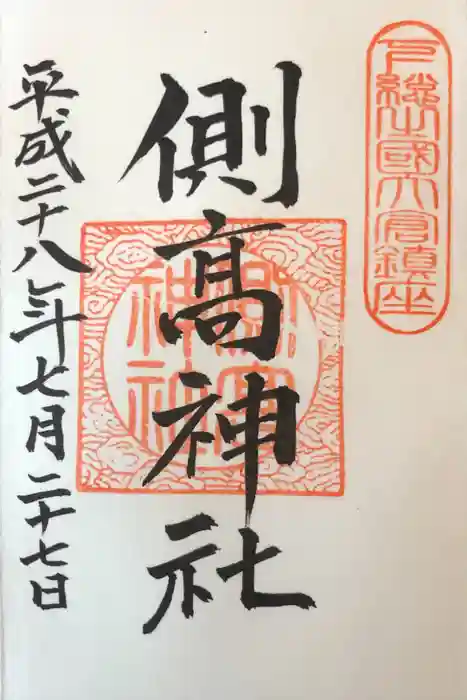 下総之國大倉鎮座
側高神社
側高神社
平成二十八年七月二十七日